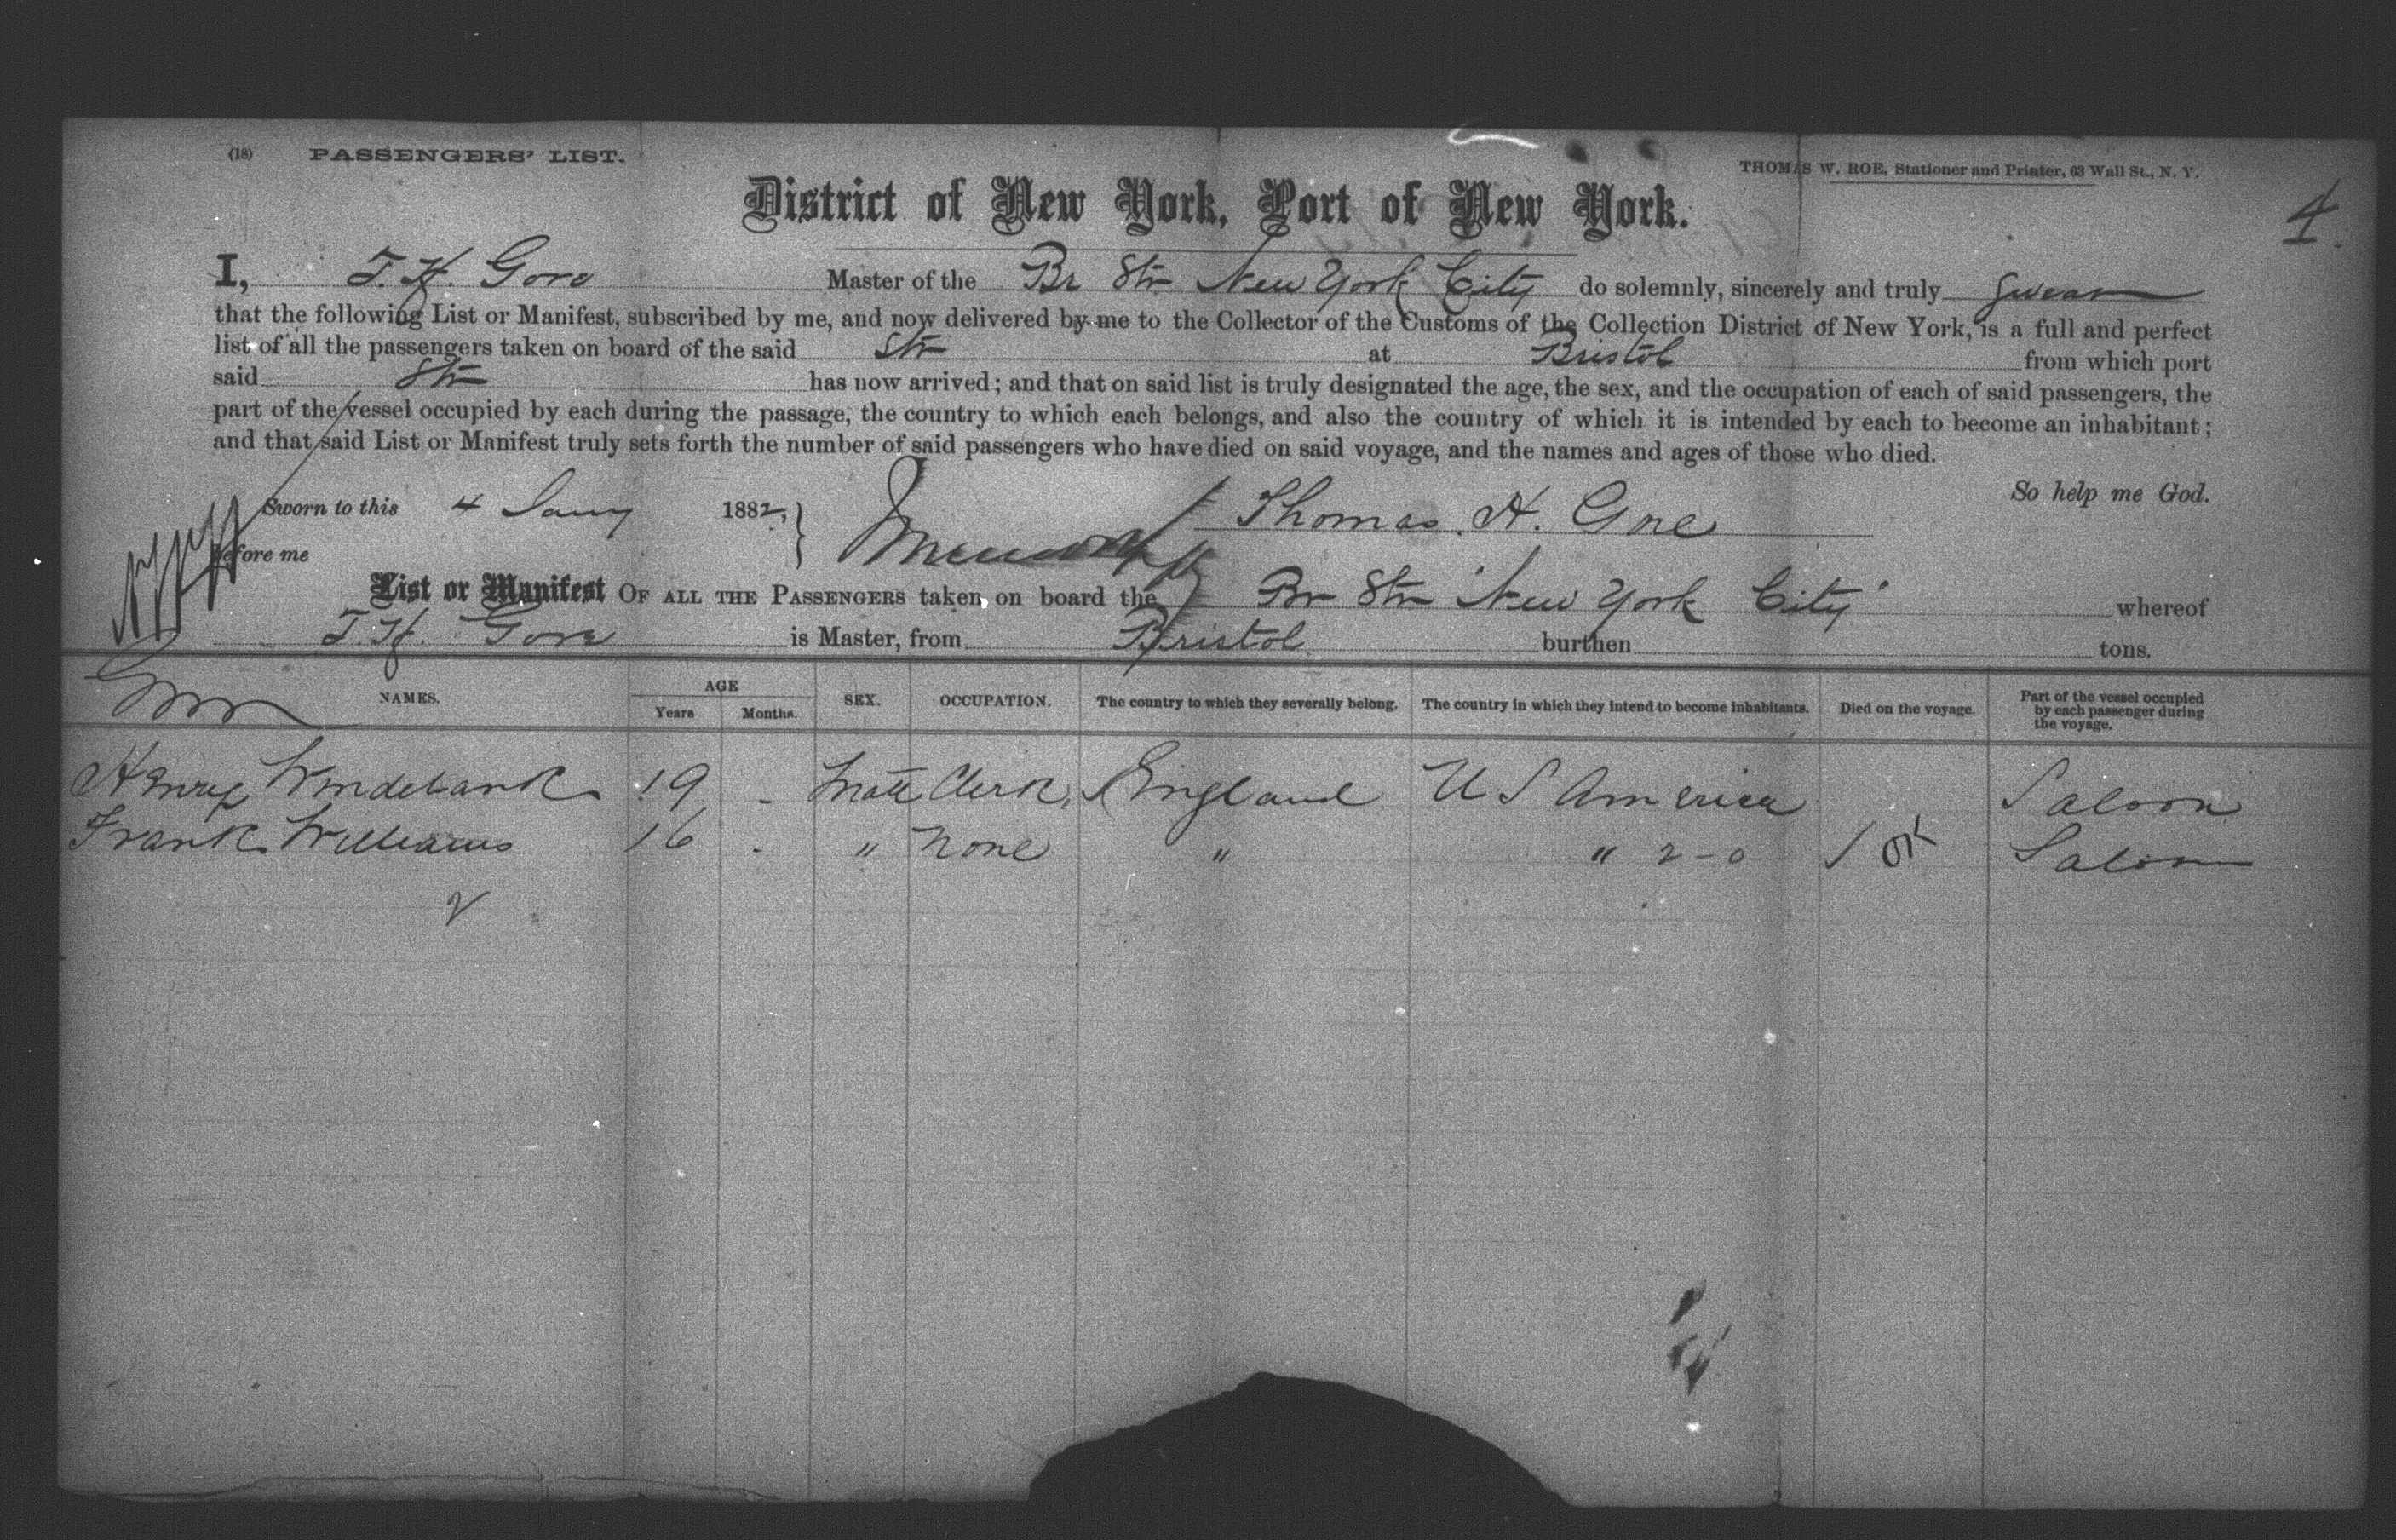 (18) PASSENGERS' LIST. THOMAS W. ROE, Stationer and Printer, 63 Wall St., N. Y.
4
District of New York, Port of New York.
I, T. H. Gore Master of the Br Str New York City do solemnly, sincerely and truly Swear
that the following List or Manifest, subscribed by me, and now delivered by me to the Collector of the Customs of the Collection District of New York, is a full and perfect
list of all the passengers taken on board of the said Str at Bristol from which port
said Str has now arrived; and that on said list is truly designated the age, the sex, and the occupation of each of said passengers, the
part of the vessel occupied by each during the passage, the country to which each belongs, and also the country of which it is intended by each to become an inhabitant;
and that said List or Manifest truly sets forth the number of said passengers who have died on said voyage, and the names and ages of those who died.
So help me God.
Sworn to this 4 Jany 1882, Thomas H. Gore
Before me
List or Manifest OF ALL THE PASSENGERS taken on board the Br Str "New York City" whereof
T. H. Gore is Master, from Bristol burthen tons.
NAMES. AGE Years Months. SEX. OCCUPATION. The country to which they severally belong. The country in which they intend to become inhabitants. Died on the voyage. Part of the vessel occupied by each passenger during the voyage.
Henry Windebank 19 - Male Clerk England U S America Saloon
Frank Williams 16 - " None " " 2-0 Saloon
2